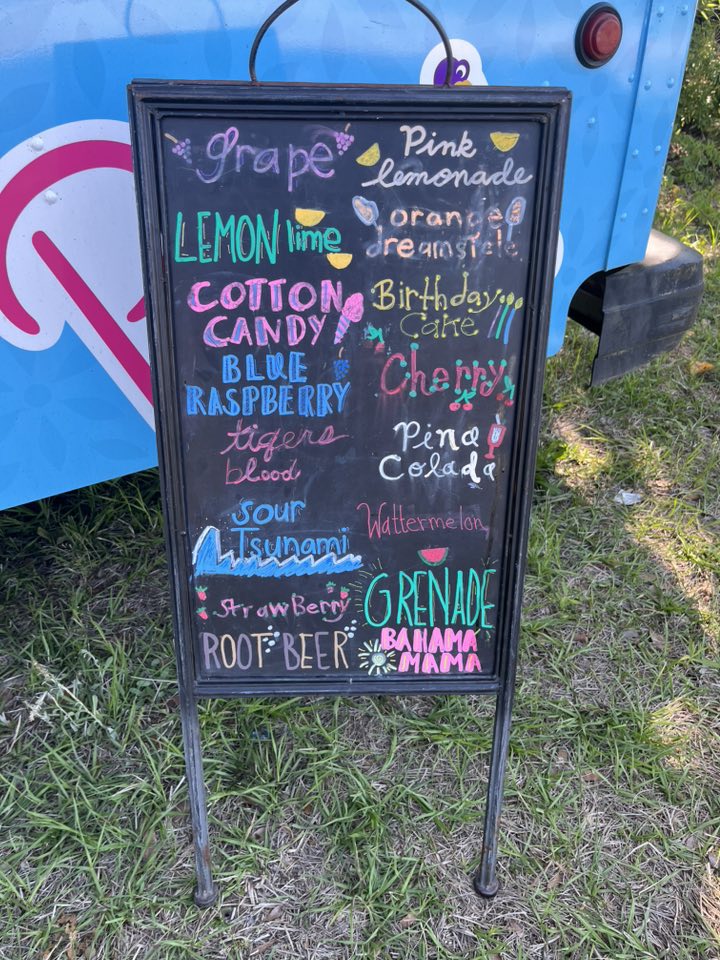 grape
LEMON lime
COTTON
CANDY
BLUE
RASPBERRY
tigers
blood
sour
Tsunami
StrawBerry
ROOT BEER
Pink
lemonade
orange
dreamsicle
Birthday
Cake
Cherry
Pina
Colada
Wattermelon
GRENADE
BAHAMA
MAMA